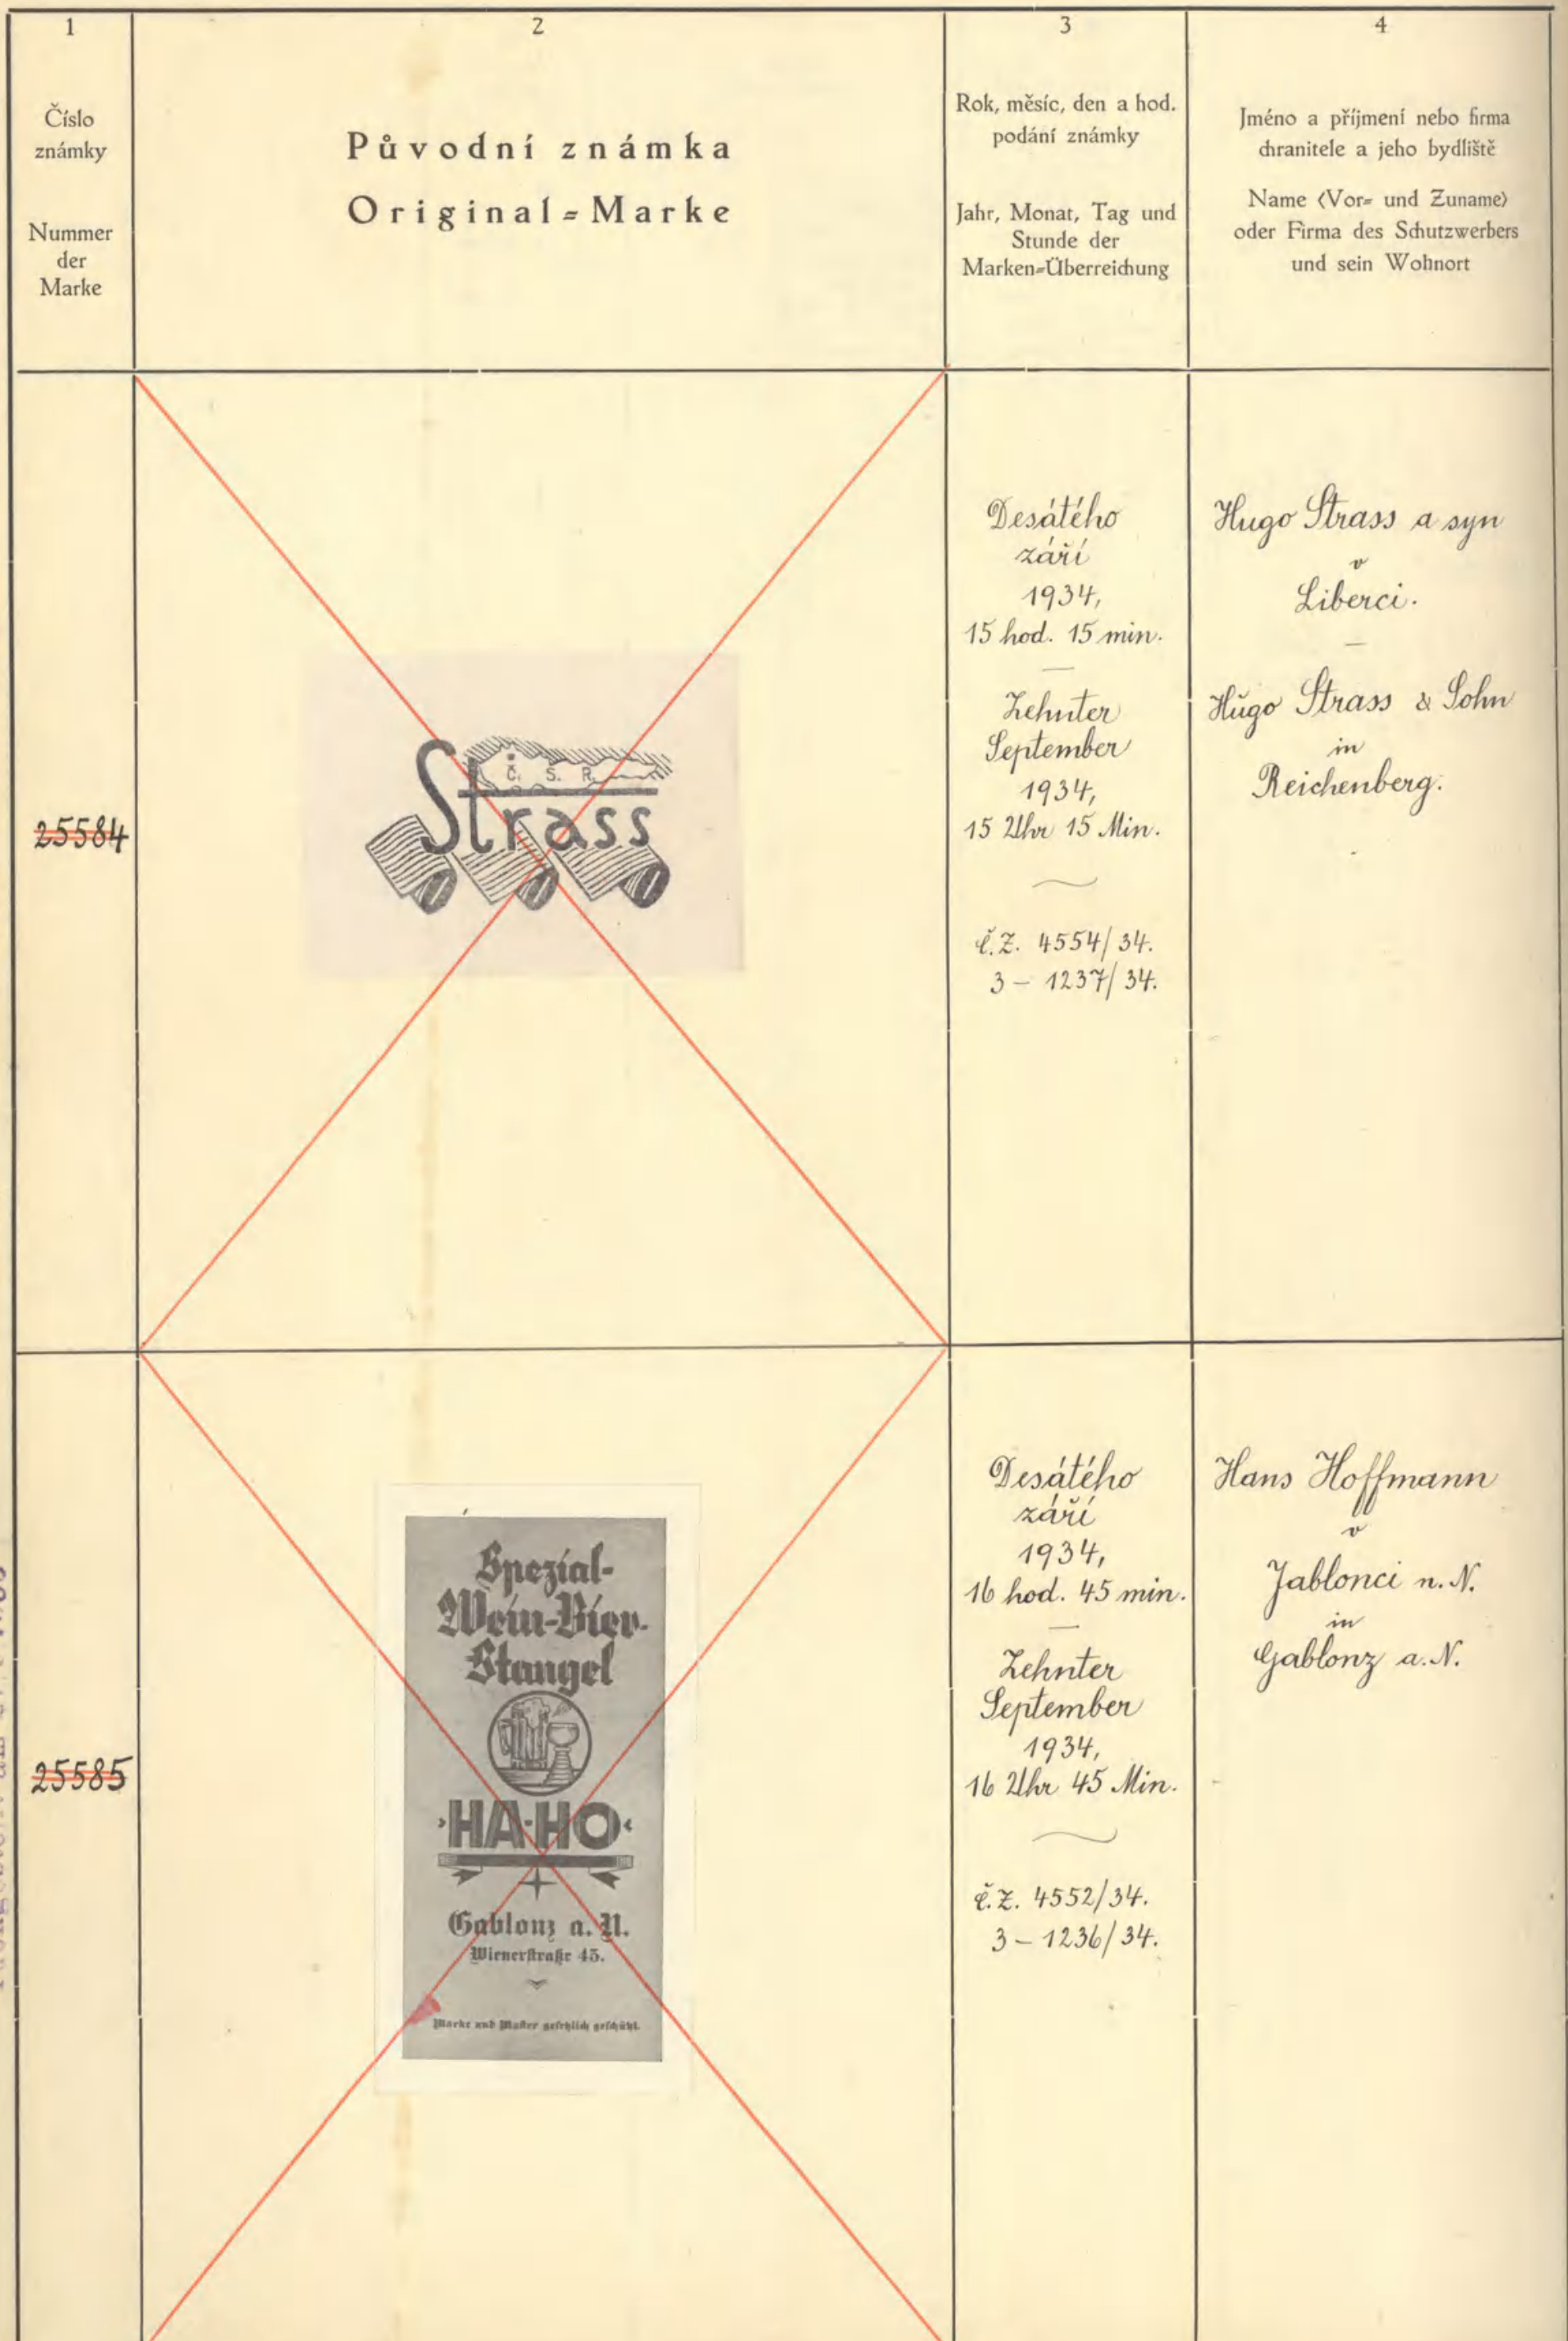 1
Číslo
známky
Nummer
der
Marke
2
Původní známka
Original=Marke
3
Rok, měsíc, den a hod.
podání známky
Jahr, Monat, Tag und
Stunde der
Marken=Überreichung
4
Jméno a příjmení nebo firma
chranitele a jeho bydliště
Name (Vor= und Zuname)
oder Firma des Schutzwerbers
und sein Wohnort
25584
Č. S. R.
Strass
Desátého
září
1934,
15 hod. 15 min.
—
Zehnter
September
1934,
15 Uhr 15 Min.
č.Z. 4554/34.
3 – 1237/34.
Hugo Strass a syn
v
Liberci.
—
Hugo Strass & Sohn
in
Reichenberg.
25585
Spezial-
Wein-Bier-
Stangel
HA-HO
Gablonz a. N.
Wienerstraße 45.
Marke und Muster gesetzlich geschützt.
Desátého
září
1934,
16 hod. 45 min.
—
Zehnter
September
1934,
16 Uhr 45 Min.
č.Z. 4552/34.
3 – 1236/34.
Hans Hoffmann
v
Jablonci n. N.
in
Gablonz a. N.